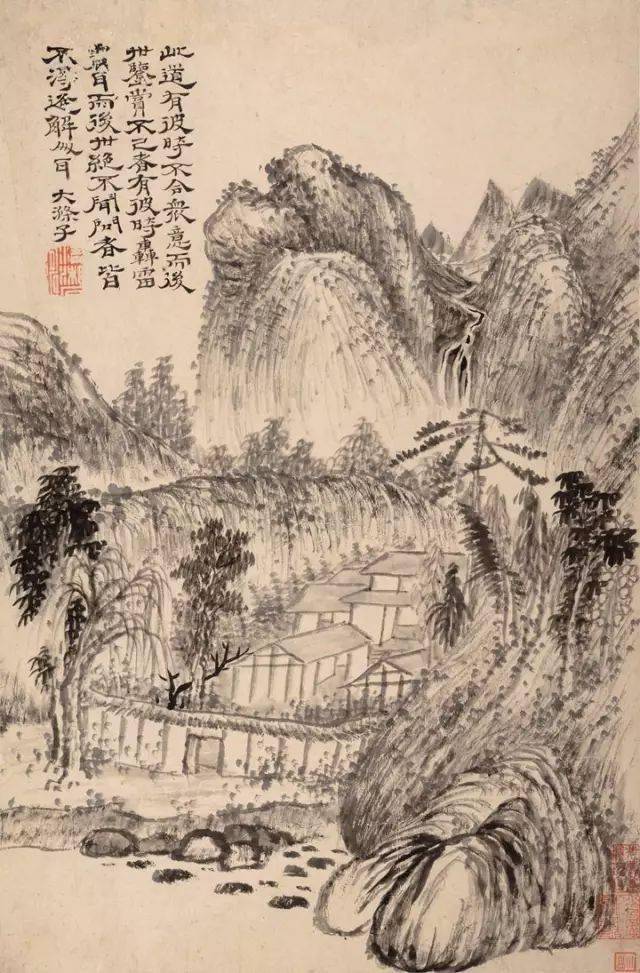 此道有彼時不合衆意而後
世鑒賞不已者有彼時轟雷
耳而後世絕不聞問者皆
不得逢解人耳 大滌子